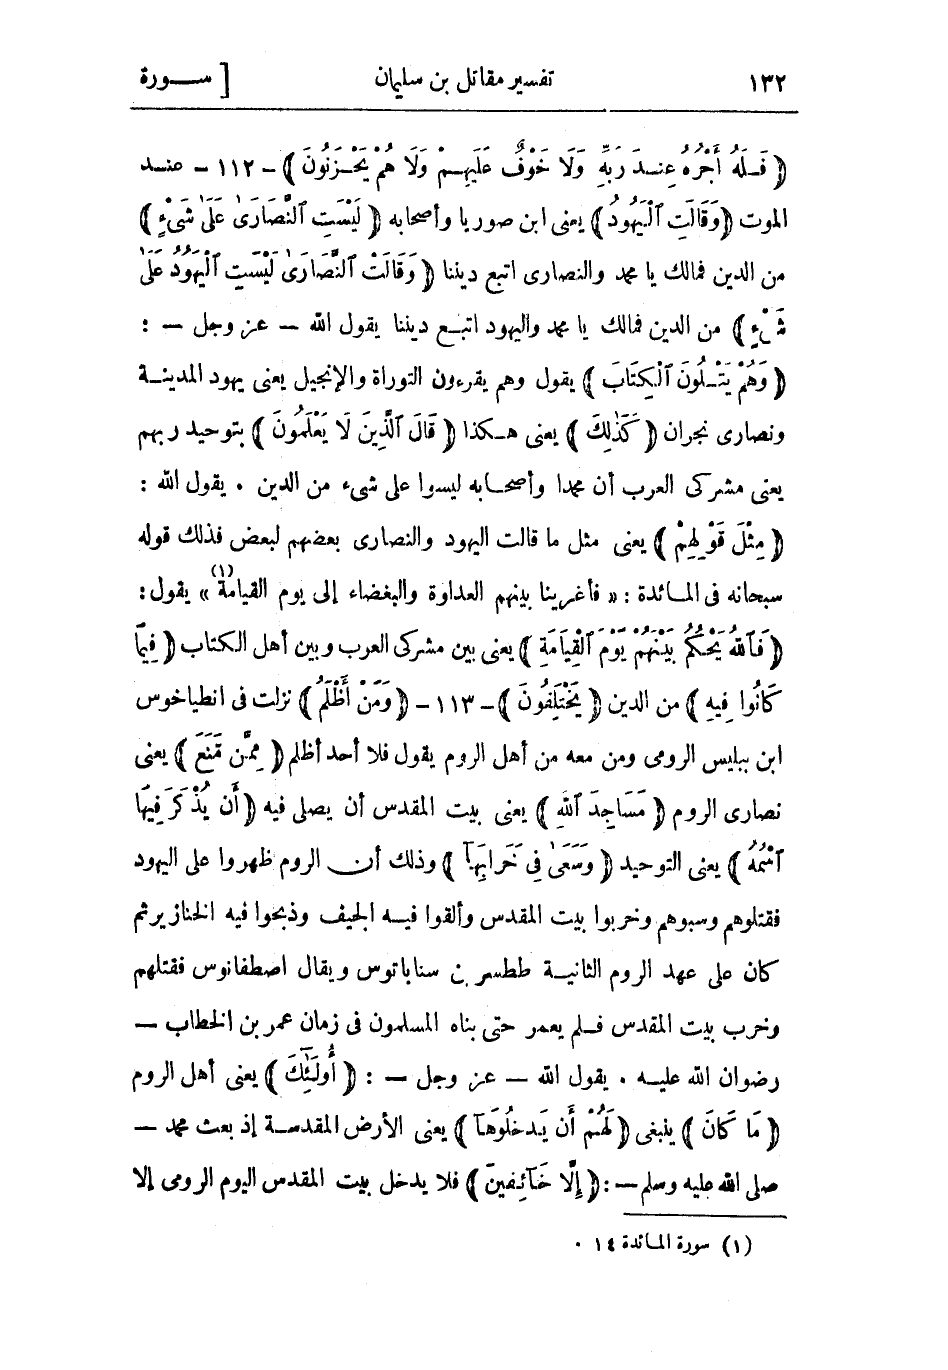 ١٣٢ تفسير مقاتل بن سليمان [ ســورة
( فَـلَهُ أَجْرُهُ عِنـدَ رَبِّهِ وَلَا خَوْفٌ عَلَيهِـمْ وَلَا هُمْ يَحْـزَنُونَ ) - ١١٢ - عنــد
الموت (وَقَالَتِ ٱلْيَهُودُ) يعنى ابن صوريا وأصحابه ( لَيْسَتِ ٱلنَّصَارَىٰ عَلَىٰ شَىْءٍ )
من الدين فمالك يا محمد والنصارى اتبع ديننا ( وَقَالَتْ ٱلنَّصَارَىٰ لَيْسَتِ ٱلْيَهُودُ عَلَىٰ
شَىْءٍ ) من الدين فمالك يا محمد واليهود اتبـع ديننا يقول الله — عز وجل — :
( وَهُمْ يَتْـلُونَ ٱلْكِتَابَ ) يقول وهم يقرءون التوراة والإنجيل يعنى يهود المدينـة
ونصارى نجران ( كَذَٰلِكَ ) يعنى هـكذا ( قَالَ ٱلَّذِينَ لَا يَعْلَمُونَ ) بتوحيد ربهم
يعنى مشركى العرب أن محمدا وأصحـابه ليسوا على شىء من الدين . يقول الله :
( مِثْلَ قَوْلِهِمْ ) يعنى مثل ما قالت اليهود والنصارى بعضهم لبعض فذلك قوله
سبحانه فى المـائدة : « فأغرينا بينهم العداوة والبغضاء إلى يوم القيامة(١) » يقول :
( فَٱللهُ يَحْكُمُ بَيْنَهُمْ يَوْمَ ٱلْقِيَامَةِ ) يعنى بين مشركى العرب وبين أهل الكتاب ( فِيمَا
كَانُوا فِيهِ ) من الدين ( يَخْتَلِفُونَ ) - ١١٣ - ( وَمَنْ أَظْلَمُ ) نزلت فى انطياخوس
ابن ببليس الرومى ومن معه من أهل الروم يقول فلا أحد أظلم ( مِمَّن مَّنَعَ ) يعنى
نصارى الروم ( مَسَاجِدَ ٱللهِ ) يعنى بيت المقدس أن يصلى فيه ( أَن يُذْكَرَ فِيهَا
ٱسْمُهُ ) يعنى التوحيد ( وَسَعَىٰ فِى خَرَابِهَآ ) وذلك أن الروم ظهروا على اليهود
فقتلوهم وسبوهم وخربوا بيت المقدس وألقوا فيـه الجيف وذبحوا فيه الخنازير ثم
كان على عهد الروم الثانيـة ططسر بن سناباتوس ويقال اصطفانوس فقتلهم
وخرب بيت المقدس فـلم يعمر حتى بناه المسلمون فى زمان عمر بن الخطاب —
رضوان الله عليـه . يقول الله — عز وجل — : ( أُولَٰٓئِكَ ) يعنى أهل الروم
( مَا كَانَ ) ينبغى ( لَهُمْ أَن يَدخُلُوهَـآ ) يعنى الأرض المقدسـة إذ بعث محمد —
صلى الله عليه وسلم — : ( إِلَّا خَآئِفِينَ ) فلا يدخل بيت المقدس اليوم الرومى إلا
(١) سورة المـائدة ١٤ .